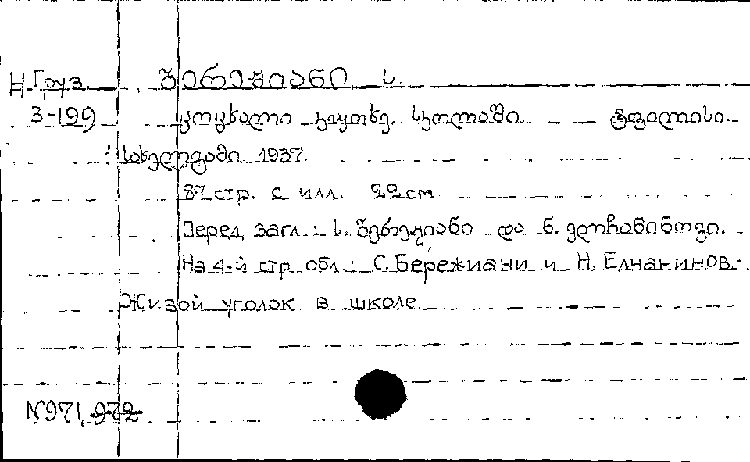 Н Груз ბერეჟიანი ს.
3-199 ცოცხალი კუთხე სკოლაში. ტფილისი.
სახელგამი 1937.
87 стр. с илл. 22 см
Перед загл.: ს. ბერეჟიანი და ნ. ელიჩანინოვი.
На 4-й стр. обл.: С. Бережиани и Н. Елчанинов.
Живой уголок в школе
N971, 972